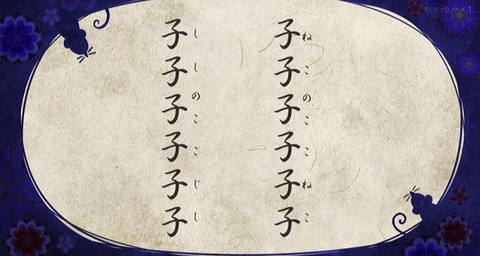 子子子子子子
ねこのここねこ
子子子子子子
ししのここじし
TOKYO MX 1